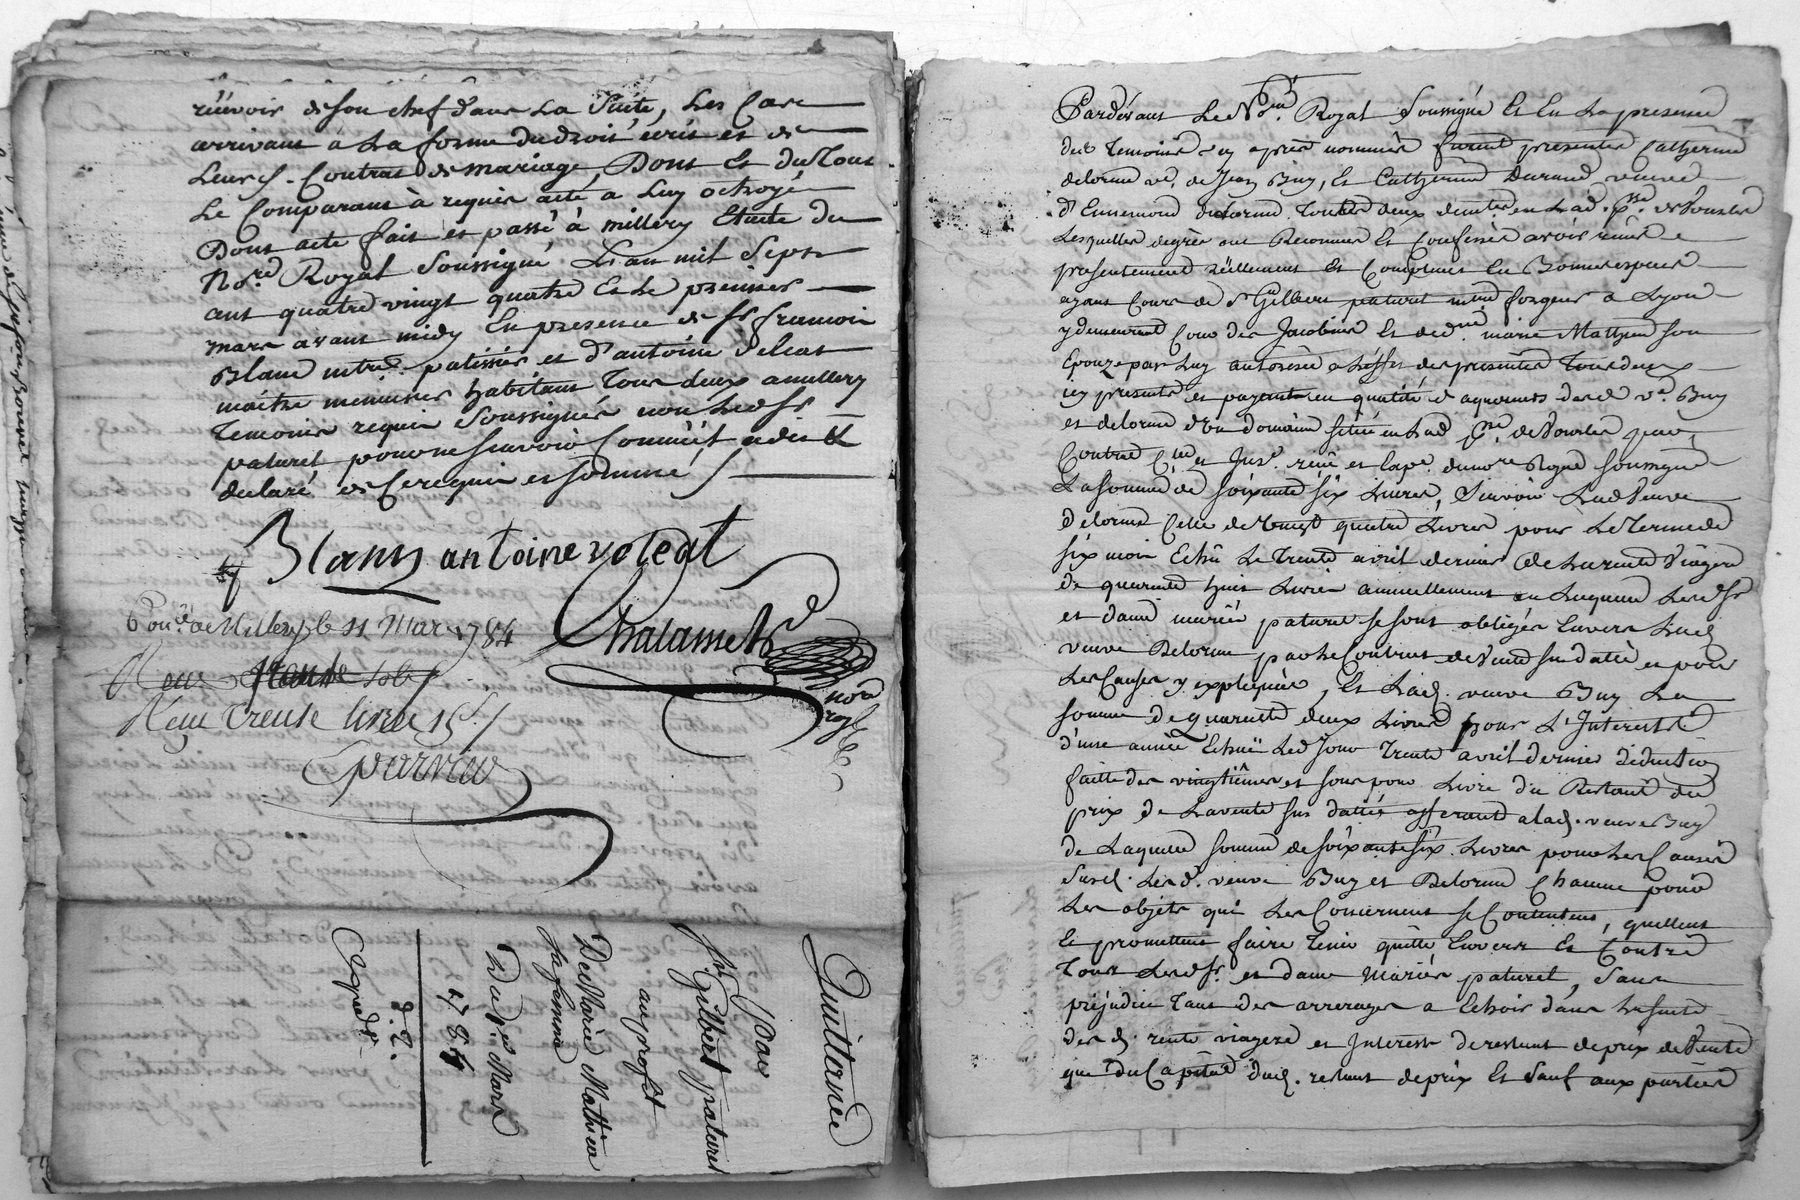 reüevoir de son chef dans La Suite, Les Cas
arrivant à La forme du droit écrit et de
Leurd. Contrat de mariage, Dont Et du Tout
Le Comparant à requis acte a Luy octroyé
Dont acte fait et passé à millery Etude du
No.re Royal Soussigné L'an mil Sept
cent quatre vingt quatre Et Le premier
mars avant midy En presence de Sr francois
Blanc mtre. patissier et d'antoine Voleat
maitre menuisier habitant Tous deux a millery
Temoins requis Soussignés non Led Sr
paturel pour ne Scavoir Comme il a dit &
declaré de Ce requis et Sommé /
Blanc antoine voleat
Chalamel
no.re
roy.l
Con.lé a Millery le 11 Mars 1784
Reçu treize livres 15 s. /
Quittance
par
Sr. Gilbert paturel
au profit
De Marie Mathieu
Sa femme
Du 1.er Mars
1784
Expediée
Pardevant Le No.re Royal Soussigné Et En La presence
des Temoins cy après nommés furent presentes Catherine
delorme ve. de Jean Buy, Et Catherine Durand veuve
d'Ennemond delorme Toutes deux demtes. en Lad. p.sse de Vourles
Lesquelles de gré ont Reconnu Et Confessé avoir reüeu
presentement réellement Et Comptant En Bonnes especes
ayant Cours de Sr Gilbert paturel md forgeur a Lyon
y demeurant Cour des Jacobins Et de d. marie Mathieu Son
Epouze par Luy autorisée a L'effet des presentes Tous deux
icy presents et payant en qualité d'aquereurs desd. ve. Buy
et delorme d'un domaine situé en Lad. p.sse de Vourles par
Contrat
La Somme de Soixante Six Livres, Scavoir Lad Veuve
delorme Celle de Vingt quatre Livres pour Le Terme de
Six mois Echû Le Trente avril dernier de La rente Viagere
de quarante huit Livres annuellement en Laquelle Lesd Sr
et dame mariés paturel Se Sont obligés Envers Lad.
veuve Delorme par Le Contrat de Vente Sus datté et pour
Les Causes y expliquées, Et Lad. veuve Buy La
Somme de quarante deux Livres pour L'Interest
d'une année Echuë Led Jour Trente avril dernier déduction
faitte des vingtiémes et Sous pour Livre du Restant du
prix de La vente Sus dattée afferant a Lad. veuve Buy
de Laquelle Somme de Soixante Six Livres pour Les Causes
Susd. Lesd. veuve Buy et Delorme Chacune pour
Les objets qui Les Concernent Se Contentent, quittent
Et promettent faire Tenir quitte Envers Et Contre
Tous Lesd Sr. et dame Mariés paturel, Sans
prejudice Tant des arrerages a Echoir dans La Suite
des d. rente viagere et Interest de restant de prix de Vente
que du Capital dud. restant de prix Et Sauf aux parties